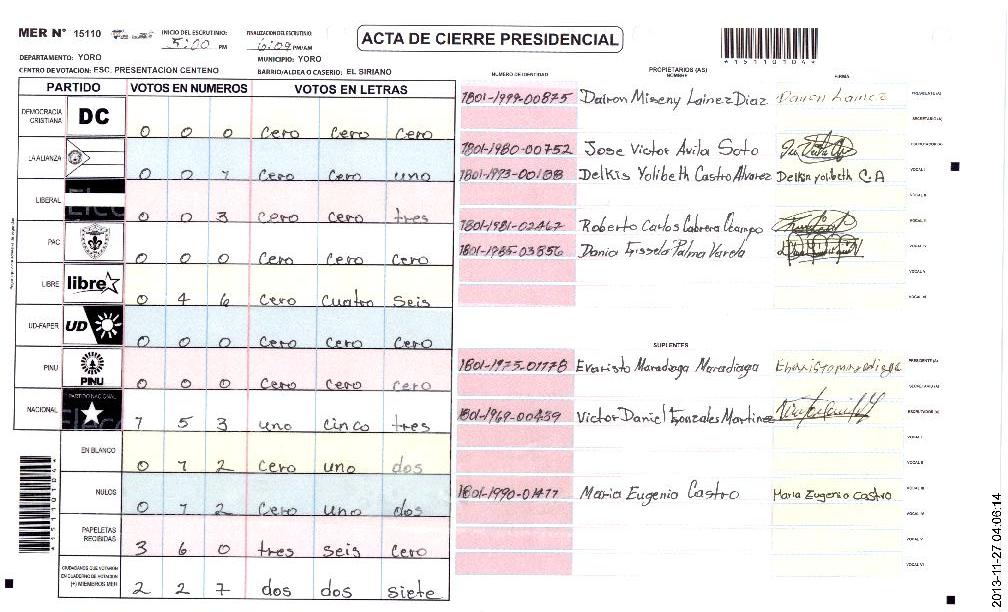 MER N° 15110 INICIO DEL ESCRUTINIO: 5:00 PM FINALIZACION DEL ESCRUTINIO: 6:09 PM/AM
ACTA DE CIERRE PRESIDENCIAL
*1511010 4*
DEPARTAMENTO: YORO MUNICIPIO: YORO
CENTRO DE VOTACION: ESC. PRESENTACION CENTENO BARRIO/ALDEA O CASERIO: EL SIRIANO
PARTIDO VOTOS EN NUMEROS VOTOS EN LETRAS
DEMOCRACIA CRISTIANA DC 0 0 0 cero cero cero
LA ALIANZA 0 0 1 cero cero uno
LIBERAL 0 0 3 cero cero tres
PAC 0 0 0 cero cero cero
LIBRE libre 0 4 6 cero cuatro seis
UD-FAPER UD 0 0 0 cero cero cero
PINU PINU 0 0 0 cero cero cero
NACIONAL PARTIDO NACIONAL 1 5 3 uno cinco tres
EN BLANCO 0 1 2 cero uno dos
NULOS 0 1 2 cero uno dos
PAPELETAS RECIBIDAS 3 6 0 tres seis cero
CIUDADANOS QUE VOTARON EN CUADERNO DE VOTACION (+) MIEMBROS MER 2 2 7 dos dos siete
NUMERO DE IDENTIDAD PROPIETARIOS (AS) NOMBRE FIRMA
1801-1999-00875 Dairon Miseny Lainez Diaz Dairon Lainez PRESIDENTE(A)
SECRETARIO(A)
1801-1980-00752 Jose Victor Avila Soto ESCRUTADOR(A)
1801-1993-00188 Delkis Yolibeth Castro Alvarez Delkin yolibeth C.A VOCAL I
VOCAL II
1801-1981-02467 Roberto Carlos Cabrera Ocampo VOCAL III
1801-1985-03856 Dania Gissela Palma Varela VOCAL IV
VOCAL V
VOCAL VI
SUPLENTES
1801-1975-01778 Evaristo Maradiaga Maradiaga PRESIDENTE (A)
SECRETARIO(A)
1801-1969-00459 Victor Daniel Gonzales Martinez ESCRUTADOR (A)
VOCAL I
VOCAL II
1801-1990-01477 Maria Eugenio Castro Maria Eugenio castro VOCAL III
VOCAL IV
VOCAL V
VOCAL VI
2013-11-27 04:06:14